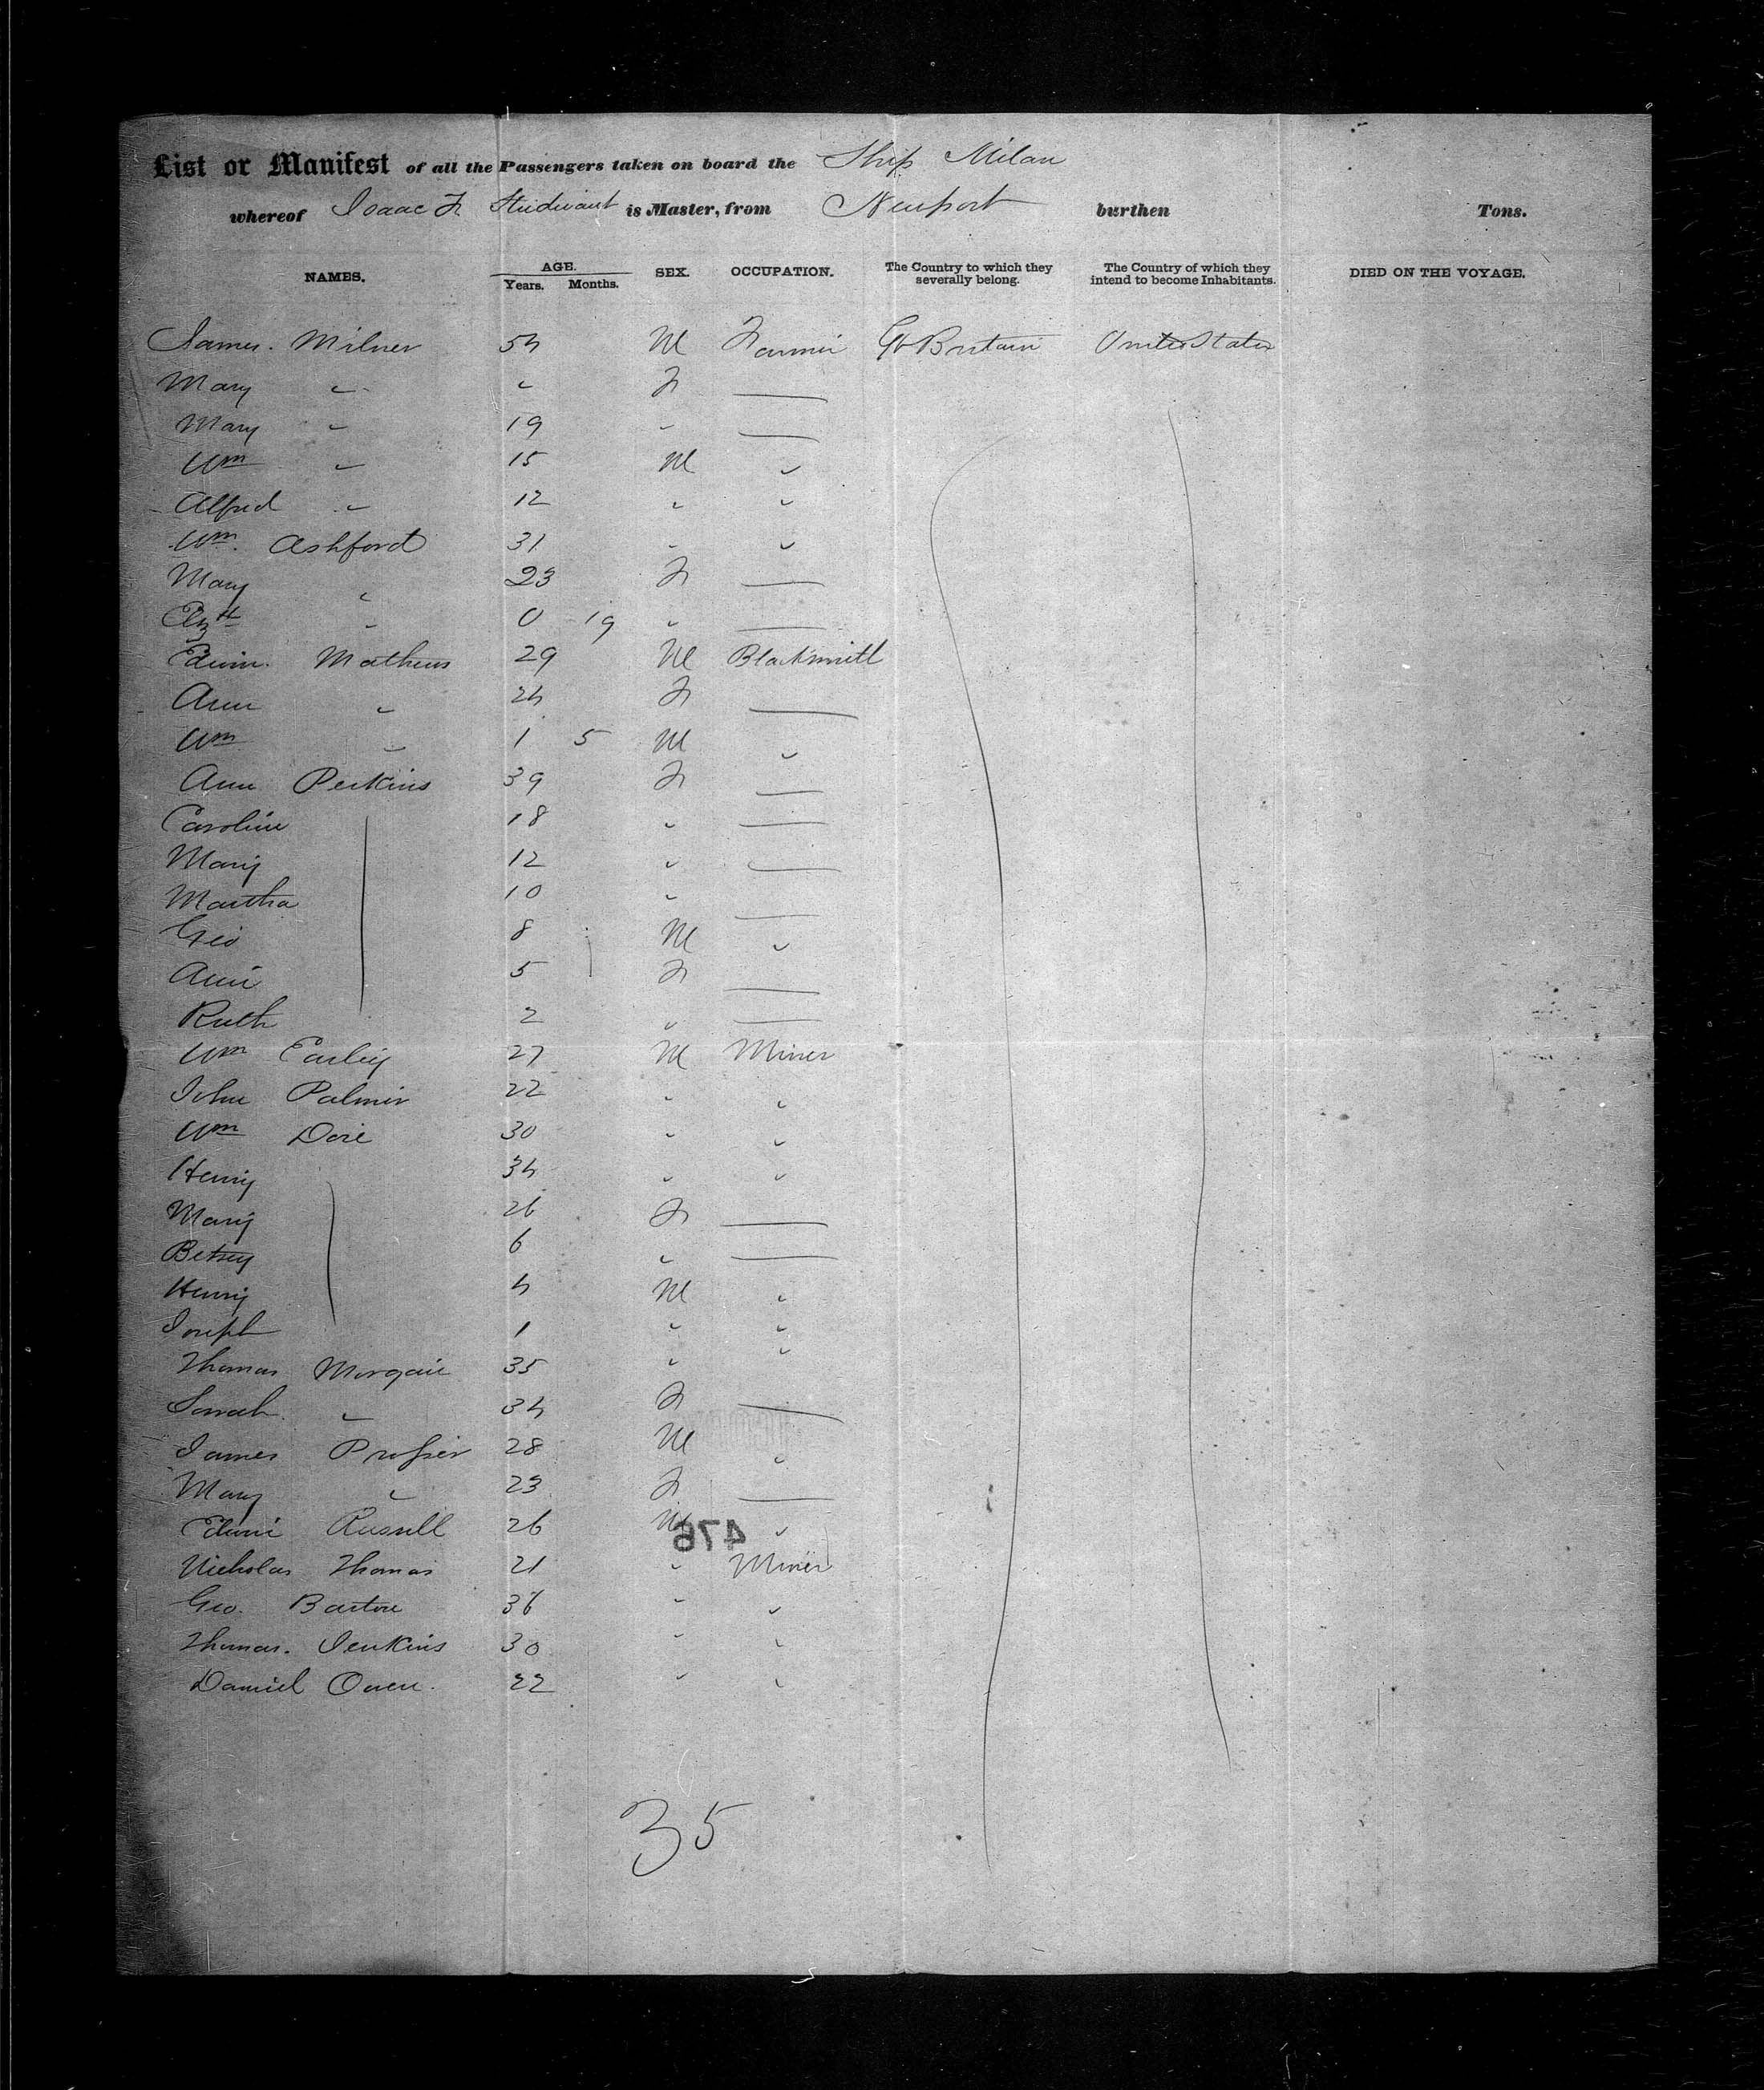 List or Manifest of all the Passengers taken on board the Ship Milan
whereof Isaac F. Studivant is Master, from Newport burthen Tons.
NAMES. AGE. Years. Months. SEX. OCCUPATION. The Country to which they severally belong. The Country of which they intend to become Inhabitants. DIED ON THE VOYAGE.
James. Milner 54 M Farmer Gt Britain United States
Mary " " F —
Mary " 19 " —
Wm " 15 M "
Alfred " 12 " "
Wm. Ashford 31 " "
Mary " 23 F —
Elizth " 0 " —
Edwin. Mathews 29 M Blacksmith
Ann " 24 F —
Wm " 1 5 M "
Ann Perkins 39 F —
Caroline 18 " —
Mary 12 " —
Martha 10 " —
Geo 8 M "
Ann 5 F —
Ruth 2 " —
Wm Earley 27 M Miner
John Palmer 22 " "
Wm Dore 30 " "
Henry 34 " "
Mary 26 F —
Betsey 6 " —
Henry 4 M "
Joseph 1 " "
Thomas Morgan 35 " "
Sarah " 34 F —
James Prosser 28 M "
Mary " 23 F —
Edwin Russell 26 M "
476
Nicholas Thomas 21 " Miner
Geo. Barton 36 " "
Thomas. Jenkins 30 " "
Daniel Owen. 22 " "
35